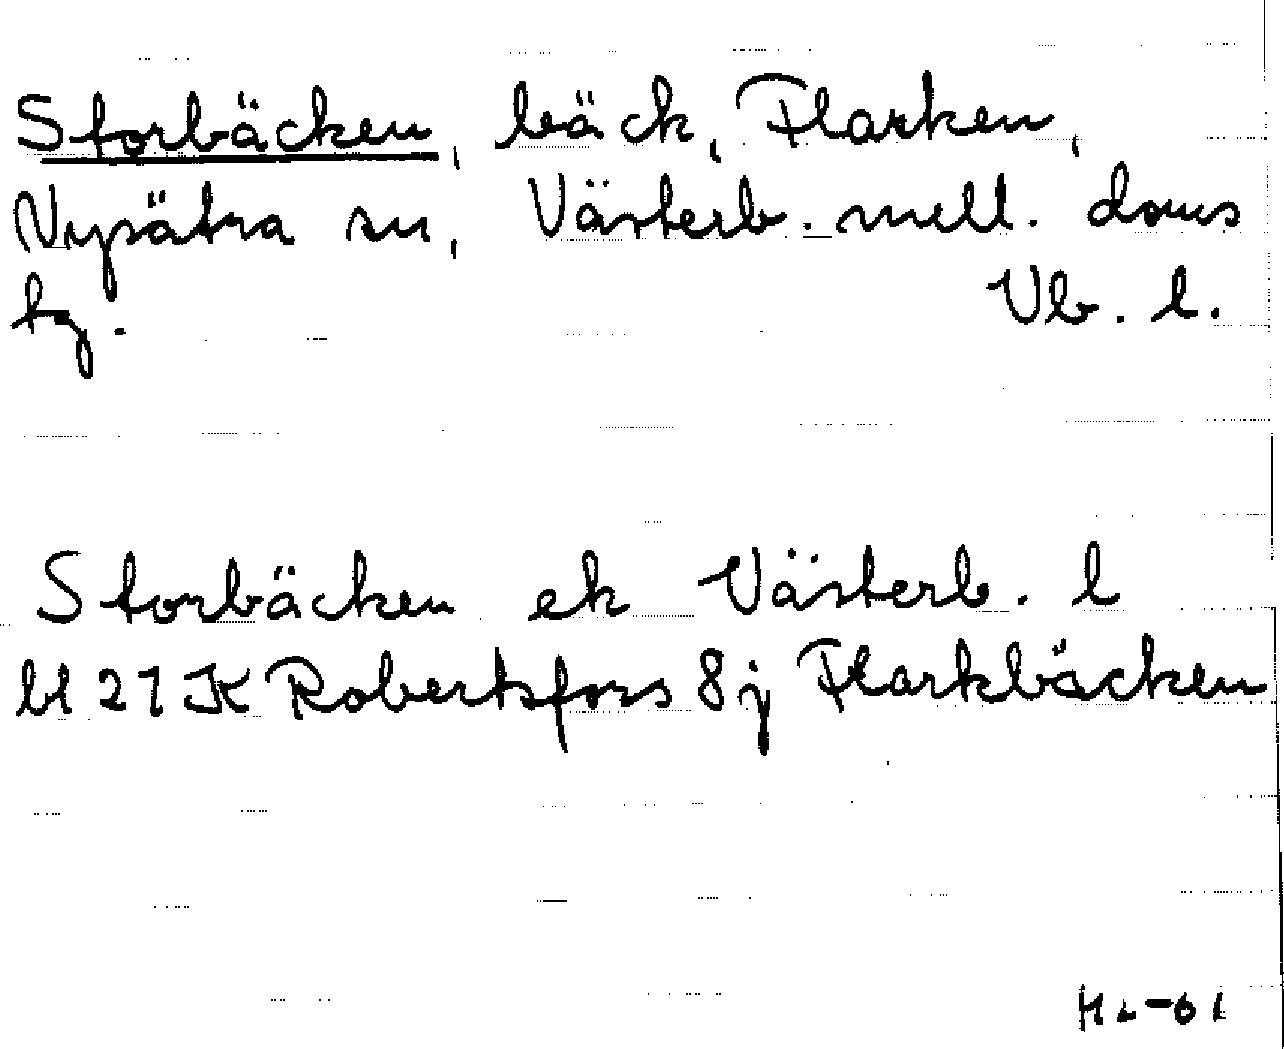 Storbäcken, bäck, Flarken,
Nysätra sn, Västerb. mell. doms
tg. Vb. l.
Storbäcken ek Västerb. l
bl 21 K Robertsfors 8j Flarkbäcken